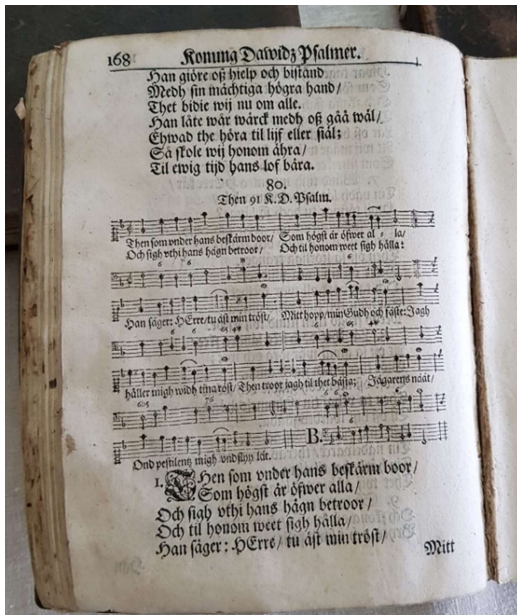 168 Konung Dawidz Psalmer.
Han giöre oß hielp och bistånd
Medh sin mächtiga högra hand/
Thet bidie wij nu om alle.
Han låte wår wärck medh oß gåå wäl/
Ehwad the höra til lijf eller siäl;
Så skole wij honom ähra/
Til ewig tijd hans lof bära.
80.
Then 91 K. D. Psalm.
Then som vnder hans beskärm boor/ Som högst är öfwer al-la/
Och sigh vthi hans hägn betroor/ Och til honom weet sigh hålla:
Han säger: HErre/ tu äst min tröst/ Mitt hopp/ min Gudh och fäste: Jagh
håller migh widh tina röst/ Then troor jagh til thet bästa; Jägarens näät/
Ond pestilentz migh vndslyy låt.
B.
1. THen som vnder hans beskärm boor/
Som högst är öfwer alla/
Och sigh vthi hans hägn betroor/
Och til honom weet sigh hålla/
Han säger: HErre/ tu äst min tröst/
Mitt